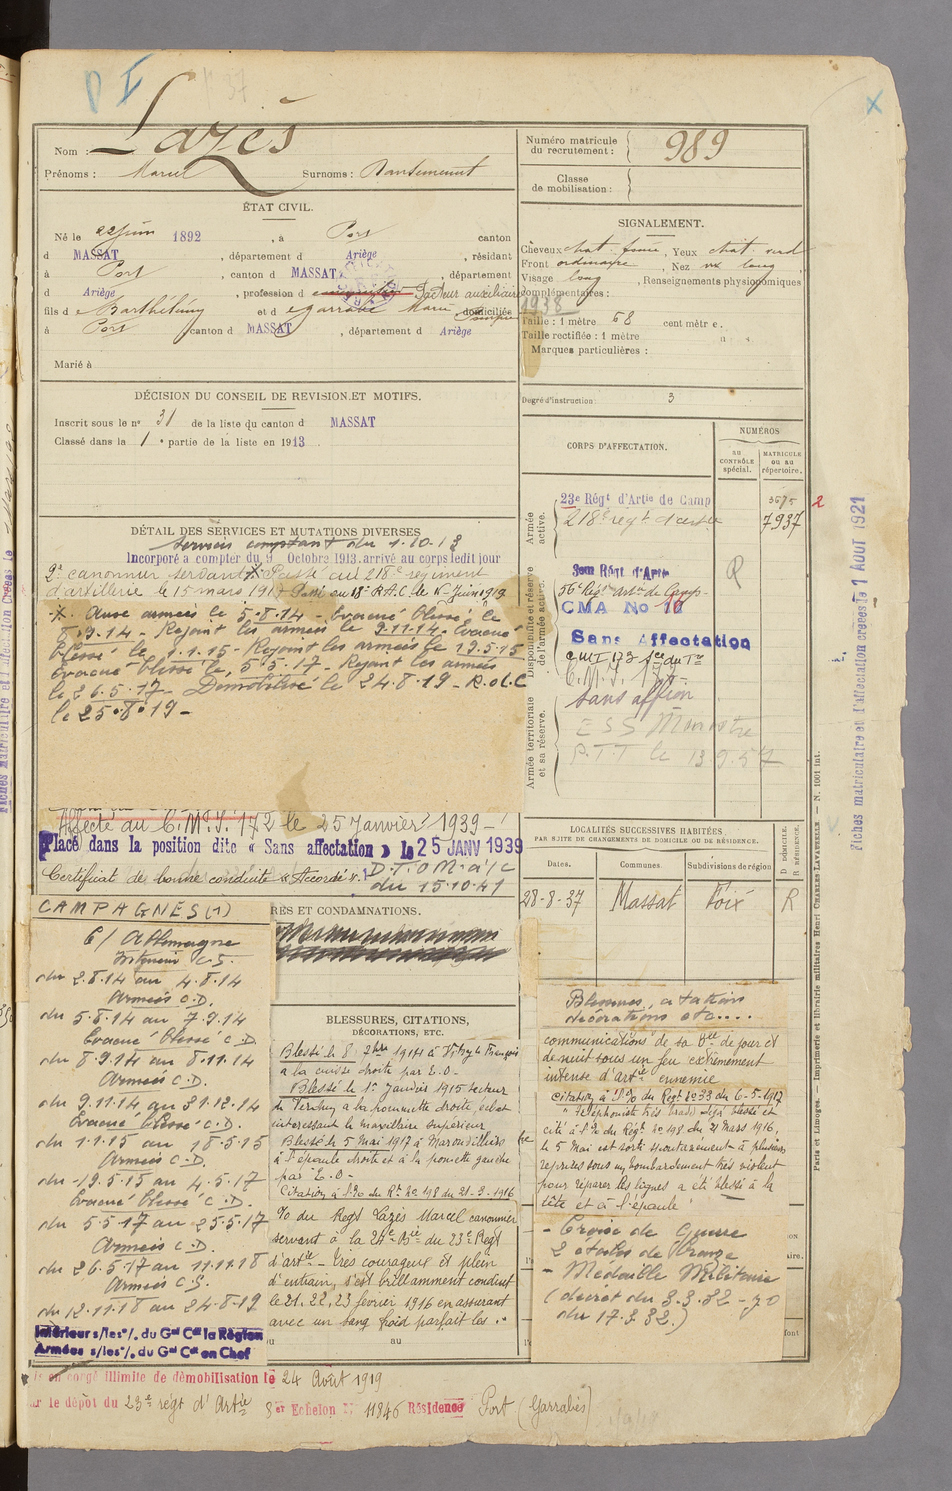 P I
Lazès
Nom :
Prénoms : Marcel Surnoms :
ÉTAT CIVIL.
Né le 22 juin 1892, à Port canton
d MASSAT, département d Ariège, résidant
à Port, canton d MASSAT, département
d Ariège, profession d Facteur auxiliaire
fils de Barthélémy et de Garrabé Marie domiciliés
à Port canton d MASSAT, département d Ariège
Marié à
DÉCISION DU CONSEIL DE REVISION ET MOTIFS.
Inscrit sous le nº 31 de la liste du canton d MASSAT
Classé dans la 1e partie de la liste en 1913
DÉTAIL DES SERVICES ET MUTATIONS DIVERSES
Services comptant du 1.10.13
Incorporé à compter du 9 Octobre 1913. arrivé au corps ledit jour
2e canonnier servant Passé au 218e régiment
d'artillerie le 15 mars 1917 Passé au 18e R.A.C. le Juin 1919
Aux armées le 5.8.14 - Evacué blessé le
8.9.14 - Rejoint les armées le 9.11.14 - Evacué
blessé le 1.1.15 - Rejoint les armées le 19.5.15
Evacué blessé le 5.5.17 - Rejoint les armées
le 26.5.17 - Démobilisé le 24.8.19 - R.d.L.C
le 25.8.19 -
Affecté au C.M.I. 172 le 25 Janvier 1939 -
Placé dans la position dite « Sans affectation » le 25 JANV 1939
Certificat de bonne conduite « Accordé ». D.T.O.M. a/c
du 15.10.41
CAMPAGNES (1)
C/ Allemagne
Intérieur C.S.
du 2.8.14 au 4.8.14
Armées C.D.
du 5.8.14 au 7.9.14
Evacué blessé C.D.
du 8.9.14 au 8.11.14
Armées C.D.
du 9.11.14 au 31.12.14
Evacué blessé C.D.
du 1.1.15 au 18.5.15
Armées C.D.
du 19.5.15 au 4.5.17
Evacué blessé C.D.
du 5.5.17 au 25.5.17
Armées C.D.
du 26.5.17 au 11.11.18
Armées C.S.
du 12.11.18 au 24.8.19
Intérieur s/les o/. du Gal Cdt la Région
Armées s/les o/. du Gal Cdt en Chef
RES ET CONDAMNATIONS.
BLESSURES, CITATIONS,
DÉCORATIONS, ETC.
Blessé le 8 7bre 1914 à Vitry le François
a la cuisse droite par E.O -
Blessé le 1er Janvier 1915 secteur
de Perthes a la pommette droite, éclat
intéressant le maxillaire supérieur
Blessé le 5 mai 1917 à Maronvilliers
à l'épaule droite et à la pomette gauche
par E.O -
Citation à l'o/o du Rt No 198 du 21-3-1916
o/o du Regt Lazès Marcel canonnier
servant à la 24e Bie du 23e Regt
d'artie - très courageux et plein
d'entrain, s'est brillamment conduit
le 21, 22, 23 fevrier 1916 en assurant
avec un sang froid parfait les
au
en congé illimité de démobilisation le 24 Août 1919
le dépot du 23e régt d'Artie 8er Echelon No 11846 Résidence Port (Garrabés)
Numéro matricule
du recrutement : 989
Classe
de mobilisation :
SIGNALEMENT.
Cheveux chat. foncé, Yeux chat.
Front ordinaire, Nez long
Visage long, Renseignements physionomiques
complémentaires :
1938
Taille : 1 mètre 68 centimètre.
Taille rectifiée : 1 mètre
Marques particulières :
Degré d'instruction : 3
CORPS D'AFFECTATION.
NUMÉROS
AU CONTRÔLE spécial.
MATRICULE OU AU répertoire.
Armée active.
23e Régt d'Artie de Camp 3675
218e régt d'artie 7937 2
Disponibilité et réserve de l'armée active.
56e Régt artie de Camp
CMA No 10
Sans Affectation
C.M.I. 173
Armée territoriale et sa réserve.
sans affon
ESS Ministre
P.T.T le 13.9.57
LOCALITÉS SUCCESSIVES HABITÉES
PAR SUITE DE CHANGEMENTS DE DOMICILE OU DE RÉSIDENCE.
Dates. Communes. Subdivisions de région D DOMICILE. R RÉSIDENCE.
28-8-37 Massat Foix R
Blessures, citations
décorations etc....
communications de sa Bie de jour et
de nuit sous un feu extrêmement
intense d'artie ennemie
Citation à l'o/o du Regt No 33 du 6-5-1917
" Téléphoniste très brave déjà blessé et
cité à l'o/o du Regt No 198 du 21 mars 1916,
le 5 mai est sorti spontanément à plusieurs
reprises sous un bombardement très violent
pour réparer les lignes a été blessé à la
tête et à l'épaule
- Croix de Guerre
2 étoiles de Bronze
- Médaille Militaire
(décret du 3.3.32 - J O
du 17.3.32.)
Paris et Limoges. — Imprimerie et librairie militaires Henri CHARLES-LAVAUZELLE. — N. 1001 int.
Fiches matriculaire et d'affectation créées le 1 AOUT 1921